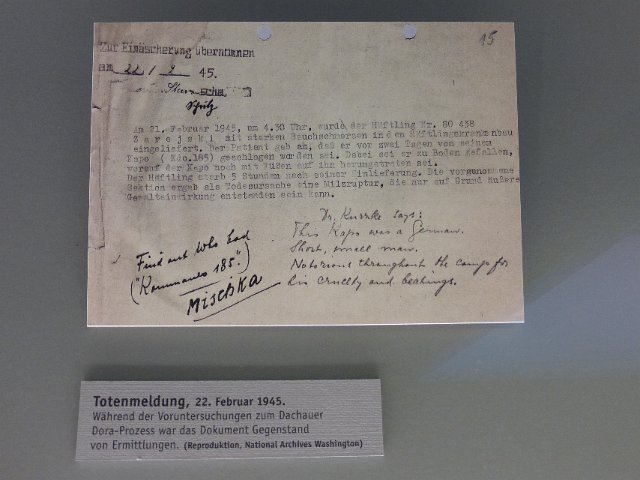 15
Zur Einäscherung übernommen
am 22 / 2 45.
Am 21. Februar 1945, um 4.30 Uhr, wurde der Häftling Nr. 80 438
Z a r e j s k i mit starken Bauchschmerzen in den Häftlingskrankenbau
eingeliefert. Der Patient gab an, daß er vor zwei Tagen von seinem
Kapo ( Kdo.185) geschlagen worden sei. Dabei sei er zu Boden gefallen,
worauf der Kapo noch mit Füßen auf ihm herumgetreten sei.
Der Häftling starb 5 Stunden nach seiner Einlieferung. Die vorgenommene
Sektion ergab als Todesursache eine Milzruptur, die nur auf Grund äußerer
Gewalteinwirkung entstanden sein kann.
Dr. Kurzke says:
This Kapo was a German.
Short, small man.
Notorious throughout the camps for
his cruelty and beatings.
Find out who had
("Kommando 185")
MISCHKA
Totenmeldung, 22. Februar 1945.
Während der Voruntersuchungen zum Dachauer
Dora-Prozess war das Dokument Gegenstand
von Ermittlungen. (Reproduktion, National Archives Washington)